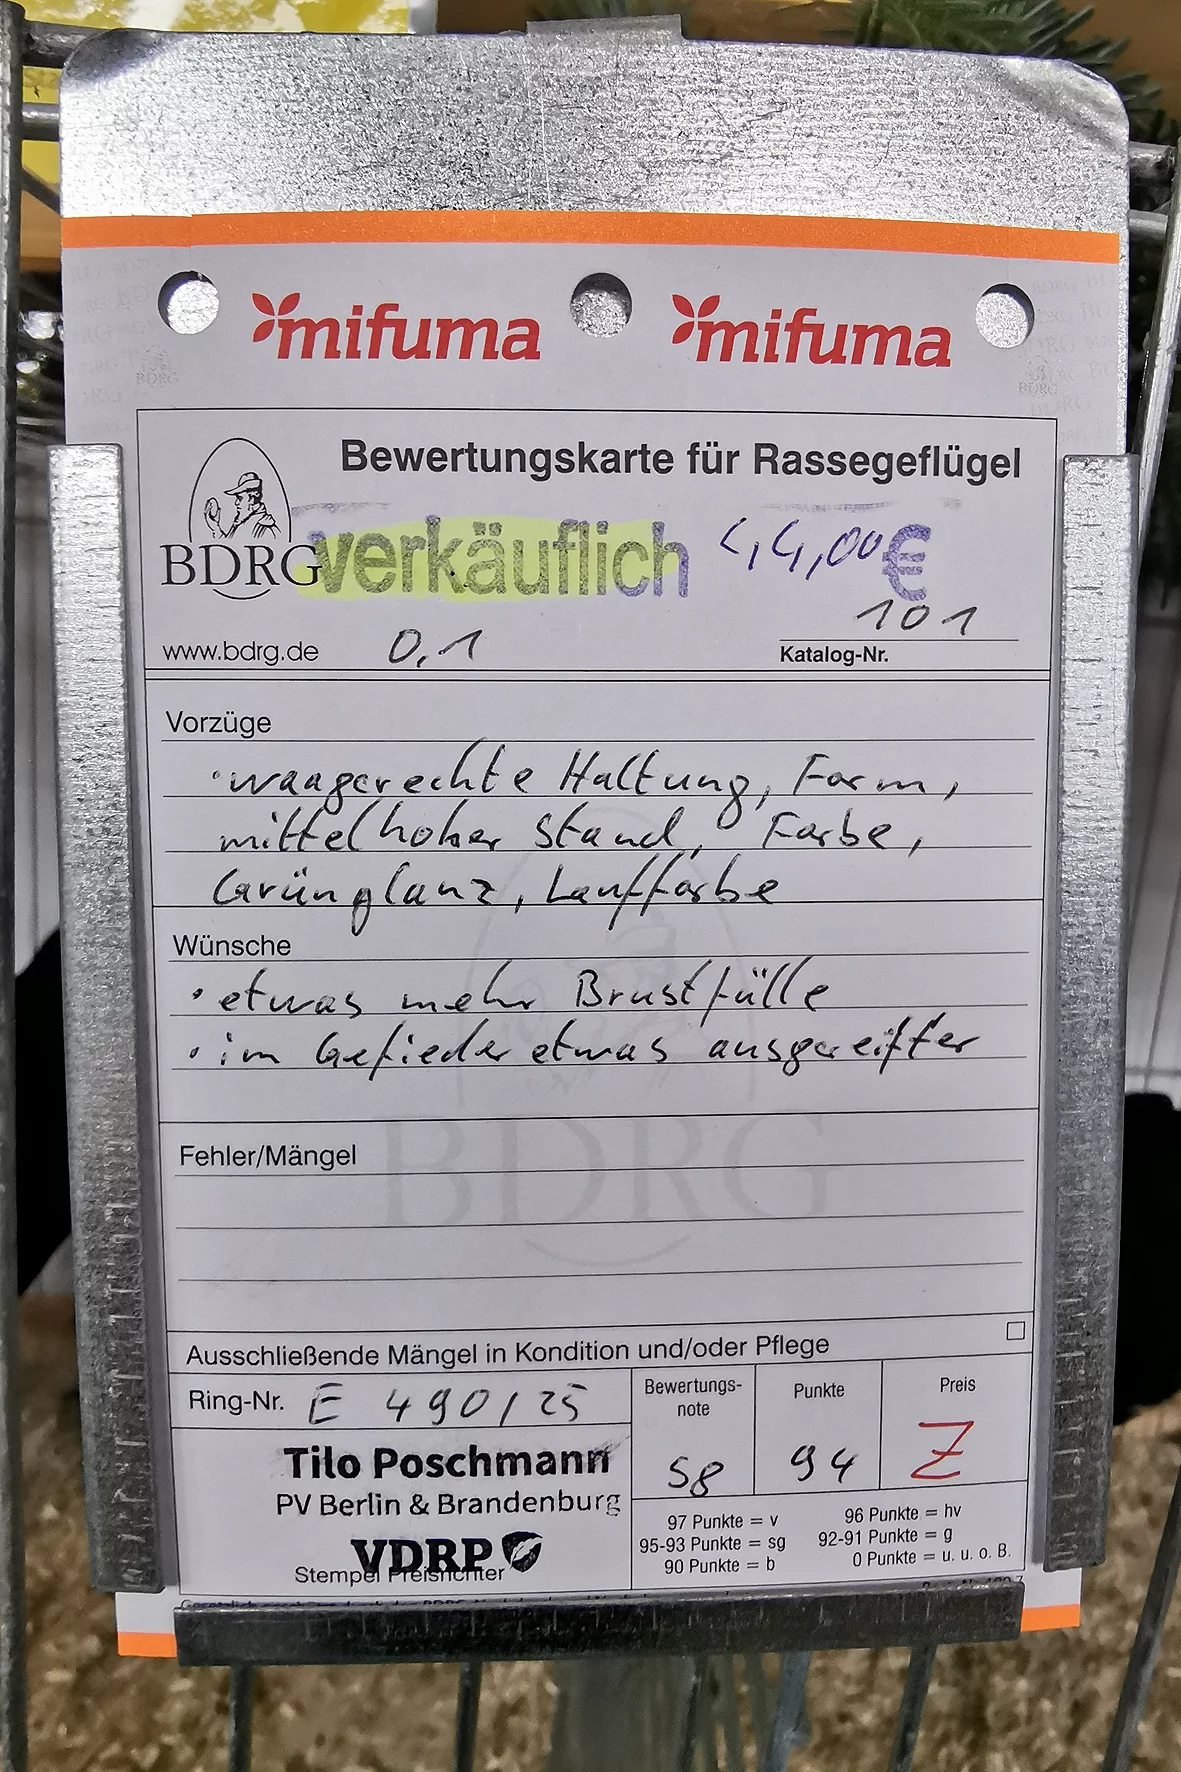 mifuma mifuma
Bewertungskarte für Rassegeflügel
BDRG
verkäuflich 44,00 €
101
www.bdrg.de 0,1 Katalog-Nr.
Vorzüge
· waagerechte Haltung, Form,
mittelhoher Stand, Farbe,
Grünglanz, Lauffarbe
Wünsche
· etwas mehr Brustfülle
· im Gefieder etwas ausgereifter
BDRG
Fehler/Mängel
Ausschließende Mängel in Kondition und/oder Pflege
Ring-Nr. E 490/25
Bewertungs-
note
Punkte
Preis
sg 94 Z
Tilo Poschmann
PV Berlin & Brandenburg
VDRP
Stempel Preisrichter
97 Punkte = v 96 Punkte = hv
95-93 Punkte = sg 92-91 Punkte = g
90 Punkte = b 0 Punkte = u. u. o. B.